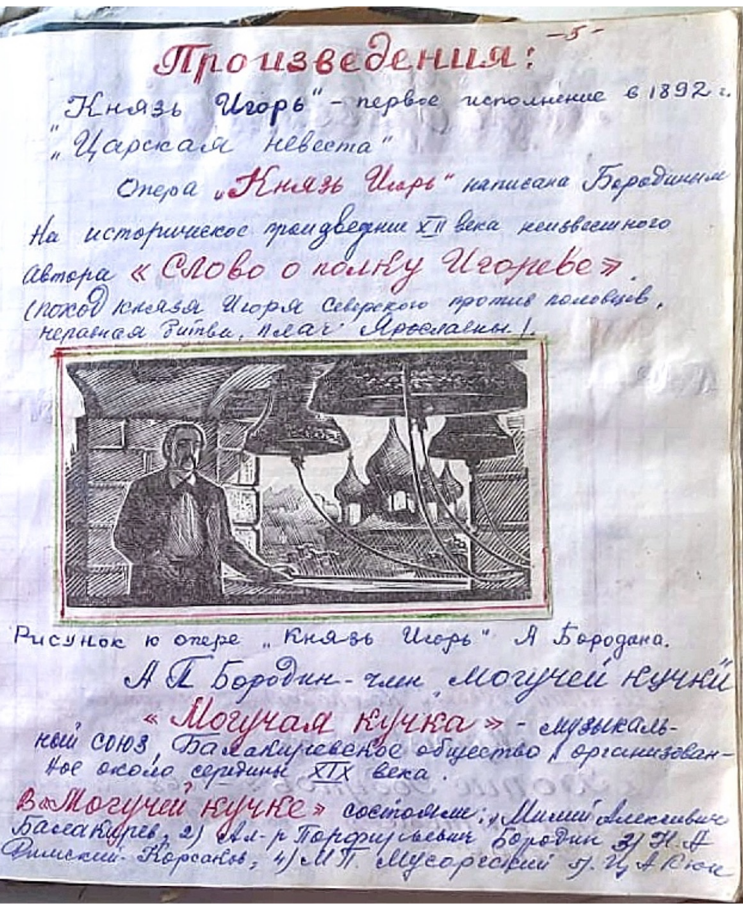 - 5 -
Произведения:
"Князь Игорь" - первое исполнение в 1892 г.
"Царская невеста"
Опера "Князь Игорь" написана Бородиным
На историческое произведение XII века неизвестного
автора «Слово о полку Игореве».
(поход князя Игоря Северского против половцев,
неравная битва, плач Ярославны).
Рисунок к опере "Князь Игорь" А Бородана.
А П Бородин - член "Могучей кучки
«Могучая кучка» - музыкаль-
ный союз, Балакиревское общество, организован-
ное около середины XIX века.
В «Могучей кучке» состояли: 1) Милий Алексеевич
Балакирев, 2) Ал-р Порфирьевич Бородин 3) Н. А
Римский-Корсаков, 4) М П. Мусоргский 5). Ц А Кюи